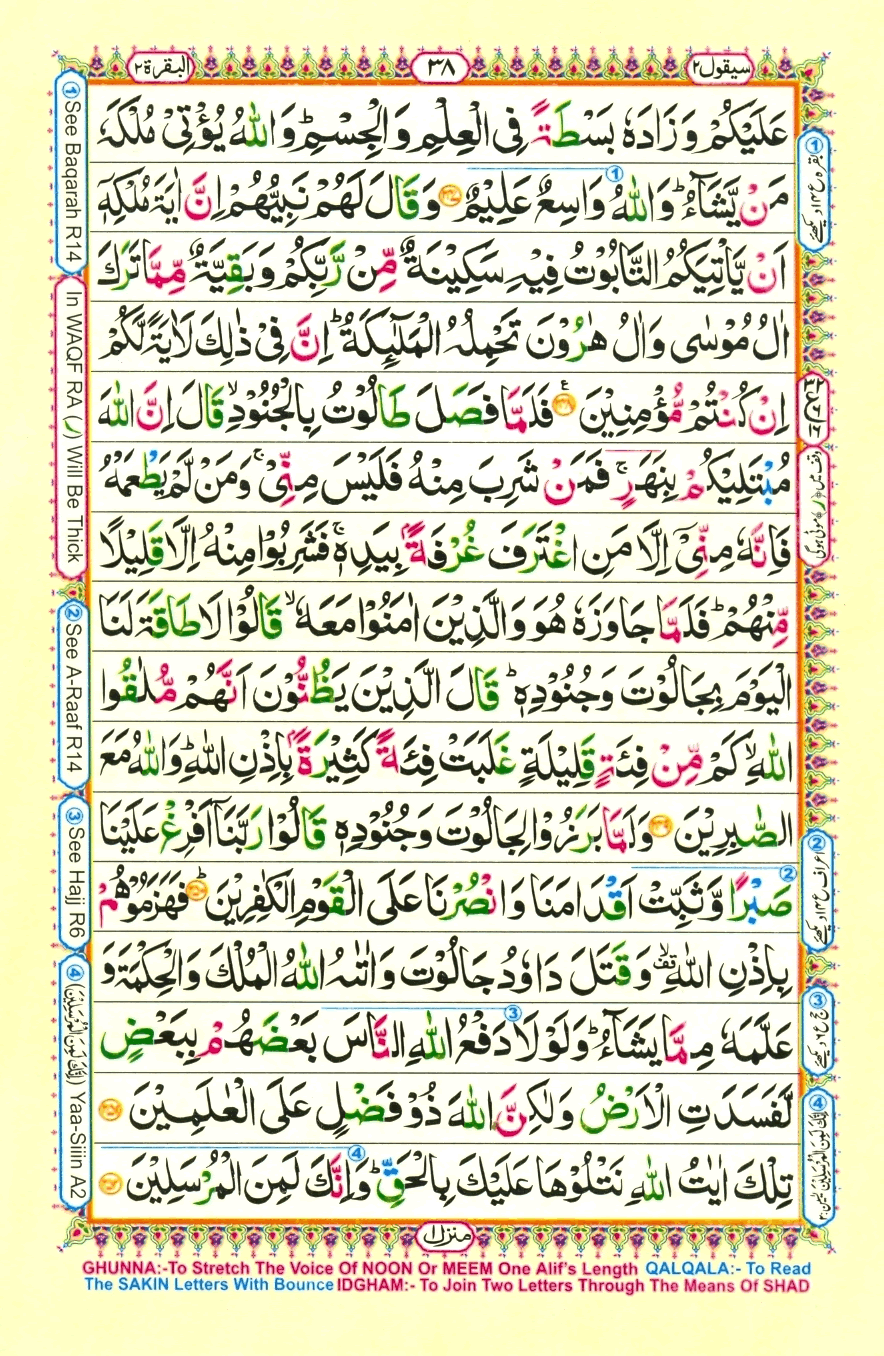 سیقول ۲
۳۸
البقرة ۲
عَلَيْكُمْ وَزَادَهٗ بَسْطَةً فِی الْعِلْمِ وَالْجِسْمِ ؕ وَاللّٰهُ يُؤْتِیْ مُلْكَهٗ
مَنْ يَّشَآءُ ؕ وَاللّٰهُ وَاسِعٌ عَلِيْمٌ ﴿۲۴۷﴾ وَقَالَ لَهُمْ نَبِيُّهُمْ اِنَّ اٰيَةَ مُلْكِهٖۤ
اَنْ يَّاْتِيَكُمُ التَّابُوْتُ فِيْهِ سَكِيْنَةٌ مِّنْ رَّبِّكُمْ وَبَقِيَّةٌ مِّمَّا تَرَكَ
اٰلُ مُوْسٰی وَاٰلُ هٰرُوْنَ تَحْمِلُهُ الْمَلٰٓئِكَةُ ؕ اِنَّ فِیْ ذٰلِكَ لَاٰيَةً لَّكُمْ
اِنْ كُنْتُمْ مُّؤْمِنِيْنَ ﴿۲۴۸﴾ فَلَمَّا فَصَلَ طَالُوْتُ بِالْجُنُوْدِ ۙ قَالَ اِنَّ اللّٰهَ
مُبْتَلِيْكُمْ بِنَهَرٍ ۚ فَمَنْ شَرِبَ مِنْهُ فَلَيْسَ مِنِّیْ ۚ وَمَنْ لَّمْ يَطْعَمْهُ
فَاِنَّهٗ مِنِّیْۤ اِلَّا مَنِ اغْتَرَفَ غُرْفَةًۢ بِيَدِهٖ ۚ فَشَرِبُوْا مِنْهُ اِلَّا قَلِيْلًا
مِّنْهُمْ ؕ فَلَمَّا جَاوَزَهٗ هُوَ وَالَّذِيْنَ اٰمَنُوْا مَعَهٗ ۙ قَالُوْا لَا طَاقَةَ لَنَا
الْيَوْمَ بِجَالُوْتَ وَجُنُوْدِهٖ ؕ قَالَ الَّذِيْنَ يَظُنُّوْنَ اَنَّهُمْ مُّلٰقُوا
اللّٰهِ ۙ كَمْ مِّنْ فِئَةٍ قَلِيْلَةٍ غَلَبَتْ فِئَةً كَثِيْرَةًۢ بِاِذْنِ اللّٰهِ ؕ وَاللّٰهُ مَعَ
الصّٰبِرِيْنَ ﴿۲۴۹﴾ وَلَمَّا بَرَزُوْا لِجَالُوْتَ وَجُنُوْدِهٖ قَالُوْا رَبَّنَاۤ اَفْرِغْ عَلَيْنَا
صَبْرًا وَّثَبِّتْ اَقْدَامَنَا وَانْصُرْنَا عَلَی الْقَوْمِ الْكٰفِرِيْنَ ﴿۲۵۰﴾ ؕ فَهَزَمُوْهُمْ
بِاِذْنِ اللّٰهِ ۙ۫ وَقَتَلَ دَاوٗدُ جَالُوْتَ وَاٰتٰىهُ اللّٰهُ الْمُلْكَ وَالْحِكْمَةَ وَ
عَلَّمَهٗ مِمَّا يَشَآءُ ؕ وَلَوْ لَا دَفْعُ اللّٰهِ النَّاسَ بَعْضَهُمْ بِبَعْضٍ
لَّفَسَدَتِ الْاَرْضُ وَلٰكِنَّ اللّٰهَ ذُوْ فَضْلٍ عَلَی الْعٰلَمِيْنَ ﴿۲۵۱﴾
تِلْكَ اٰيٰتُ اللّٰهِ نَتْلُوْهَا عَلَيْكَ بِالْحَقِّ ؕ وَاِنَّكَ لَمِنَ الْمُرْسَلِيْنَ ﴿۲۵۲﴾
① See Baqarah R14
In WAQF RA (ر) Will Be Thick
② See A-Raaf R14
③ See Hajj R6
④ (اِنَّكَ لَمِنَ الْمُرْسَلِيْنَ) Yaa-Siiin A2
① بقرہ ع ۱۴ دیکھئے
وقف میں (ر) موٹی ہوگی
② اعراف ع ۱۴ دیکھئے
③ حج ع ۶ دیکھئے
منزل ۱
GHUNNA:-To Stretch The Voice Of NOON Or MEEM One Alif's Length QALQALA:- To Read
The SAKIN Letters With Bounce IDGHAM:- To Join Two Letters Through The Means Of SHAD